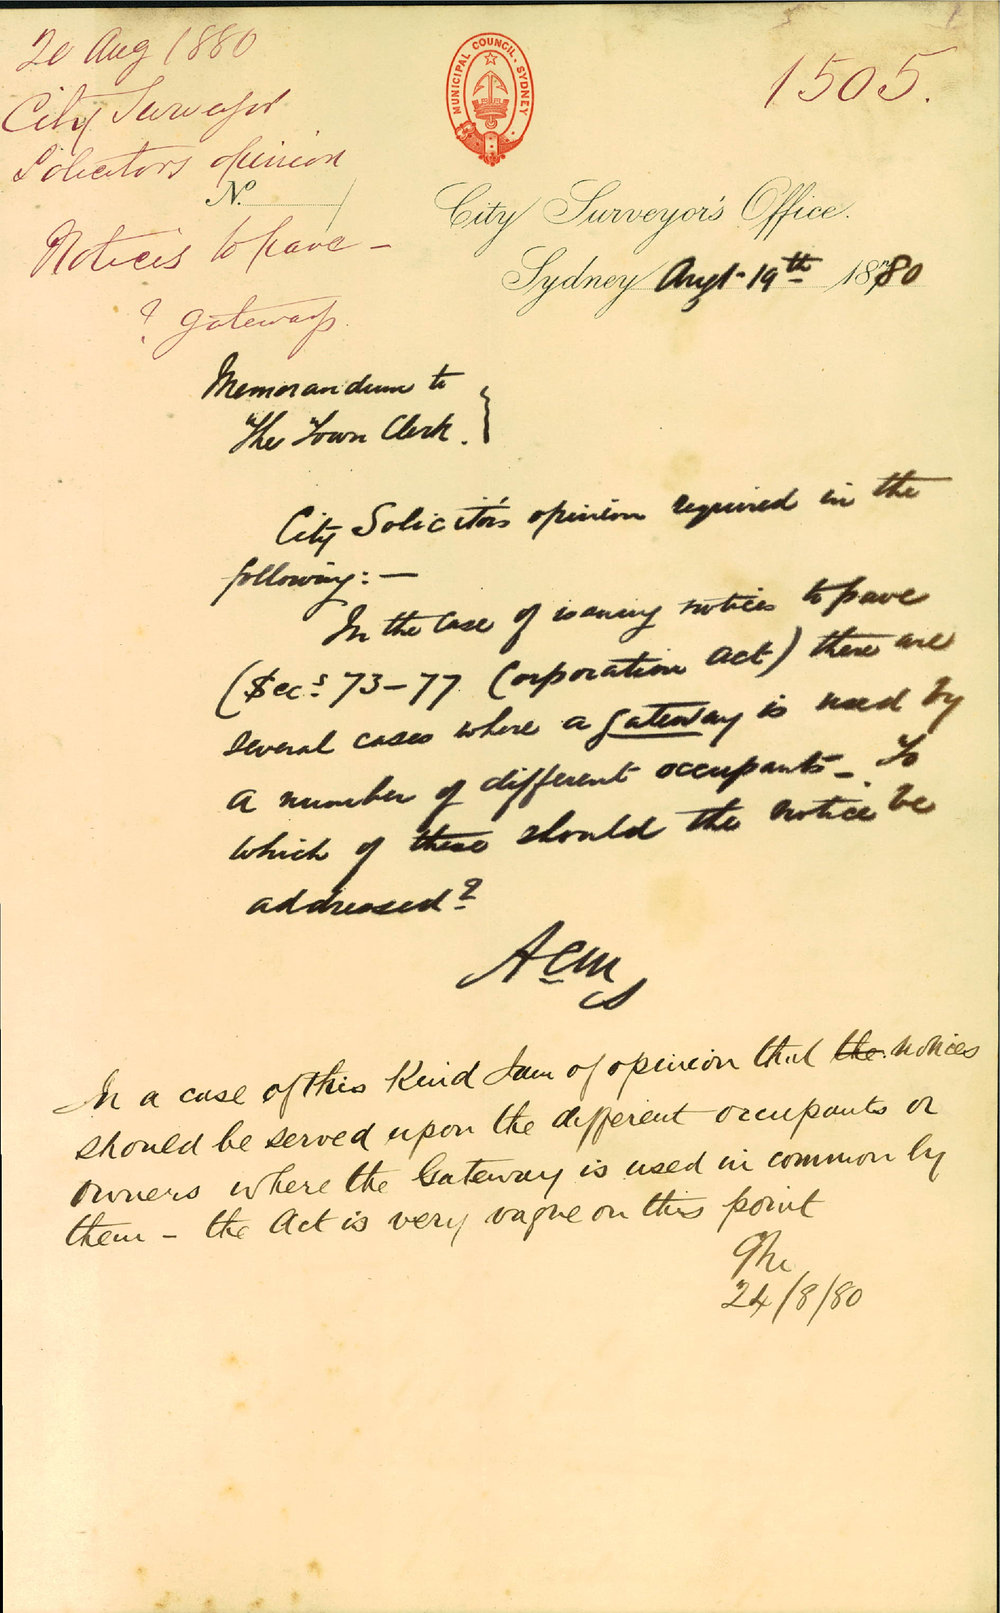 20 Aug 1880
City Surveyor
Solicitors opinion
No.
Notices to pave -
? gateways.
MUNICIPAL COUNCIL. SYDNEY
1505.
City Surveyor's Office.
Sydney Augt. 19th 1880
Memorandum to
The Town Clerk. }
City Solicitor's opinion required in the
following: —
In the case of issuing notices to pave
(Secs. 73-77 Corporation Act) there are
several cases where a gateway is used by
a number of different occupants - To
which of these should the notice be
addressed?
In a case of this kind I am of opinion that the notices
should be served upon the different occupants or
owners where the Gateway is used in common by
them - the Act is very vague on this point
24/8/80